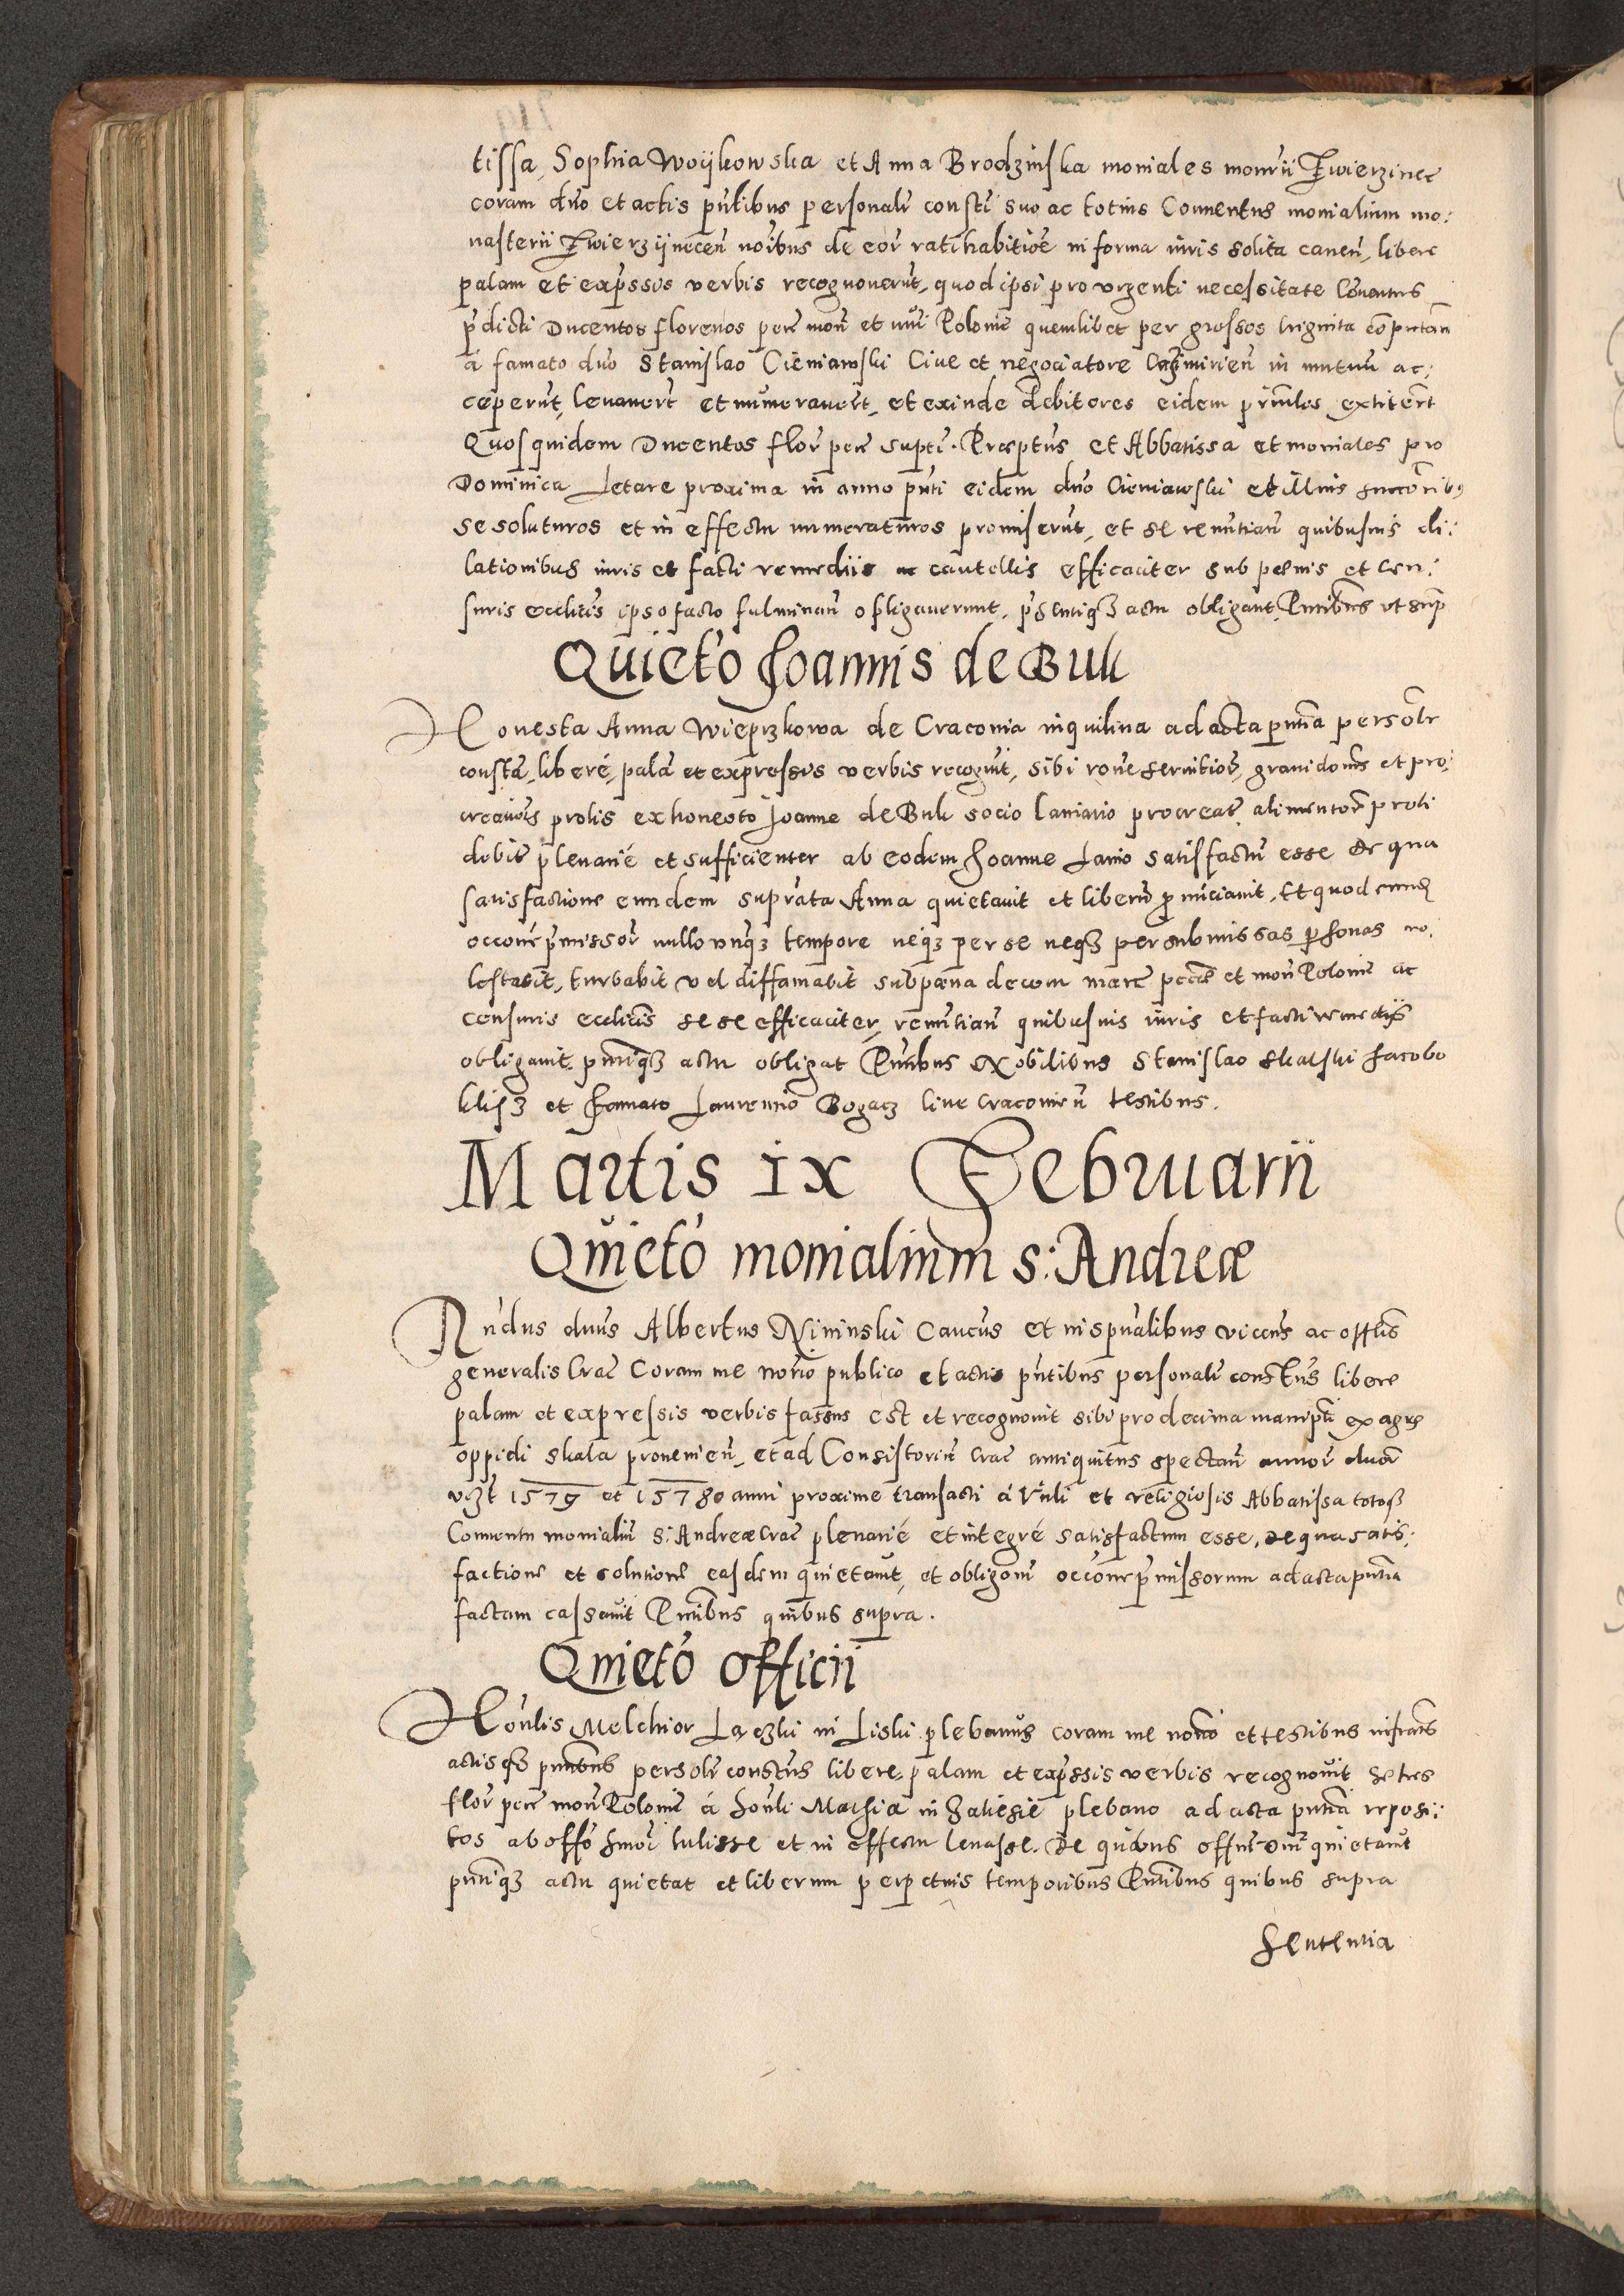 tissa, Sophia Woijkowska et Anna Brodzinska moniales monrii Zwierzinec
coram dno et actis pntibus personalr consti suo ac totius Conuentus monialium mo:
nasterii Zwierzijnecen noibus de eor ratihabitioe in forma iuris solita cauen, libere
palam et expssis verbis recognouerut, quod ipsi pro vrgenti necessitate Conuentus
pdicti Ducentos florenos pecu mon et nui Polonie quemlibet per grossos triginta coputan
á famato dno Stanislao Cieniawski Ciue et negociatore Casimirien in mutuu ac:
ceperut, leuauert et numerauert, et exinde debitores eidem principles extitert
Quos quidem Ducentos flor pecu supti. Preptus et Abbatissa et moniales pro
Dominica Letare proxima in anno pnti eidem dno Cieniawski et illius succoribus
se soluturos et in effectu numeraturos promiserut, et se renutian quibusuis di:
lationibus iuris et facti remediis ac cautellis efficaciter sub penis et cen:
suris ecclicis ipso facto fulminan obligauerunt, psentiq3 actu obligant Pntibus vt sup
Quieto Joannis de Buk
Honesta Anna Wieprzkowa de Craconia inquilina ad acta pntia personlr
consta, liberé, pala et expressis verbis recognit, sibi rone seruitior, grauidonis et pro:
creaiois prolis ex honesto Joanne de Buk socio laniario procreate alimentor proli
debit plenarié et sufficienter ab eodem Joanne Lanio satisfactu esse De qua
satisfactione eundem suprata Anna quietauit et liberu pnuciauit, Et quod eunde
occone pmissor nullo vnq3 tempore neq3 per se neq3 per submissas psonas mo:
lestabit, turbabit vel diffamabit sub pœna decem marc pecce et mon Polonie ac
censuris ecclicis sese efficaciter, renutian quibusuis iuris et facti remedijs
obligauit, pntiq3 actu obligat Pntibus Nobilibus Stanislao Skarski Jacobo
klis3 et famato Laurentio Bogacz Ciue Cracouien testibus.
Martis IX Februarii
Quieto monialium S: Andreæ
Rndus dnus Albertus Nininski Cancus et in spualibus vicens ac offlis
generalis Crac Coram me norio publico et actis pntibus personalr constus libere
palam et expressis verbis fassus est et recognouit sibi pro decima manipli ex agris
oppidi Skala prouenien, et ad Consistoriu Crac antiquitus spectan annor duor
vz3t 1579 et 15780 anni proxime transacti á Vnli et religiosis Abbatissa totoq3
Conuentu monialiu S: Andreæ Crac plenarié et integré satisfactum esse, de qua satis:
factione et solutione easdem quietauit, et obligonem occone pmissorum ad acta pntia
factam cassauit Pntibus quibus supra.
Quieto officii
Honlis Melchior Łączki in Liski plebanus coram me norio et testibus infratis
actisq3 pntibus personlr constus libere, palam et expssis verbis recognouit se tres
flor pecu mon Polonie á honli Mathia in Zatiesie plebano ad acta pntia reposi:
tos ab offo hmoi tulisse et in effectu leuasse. De quibus offium quietauit
pntiq3 actu quietat et liberum perpetuis temporibus Pntibus quibus supra
Sententia